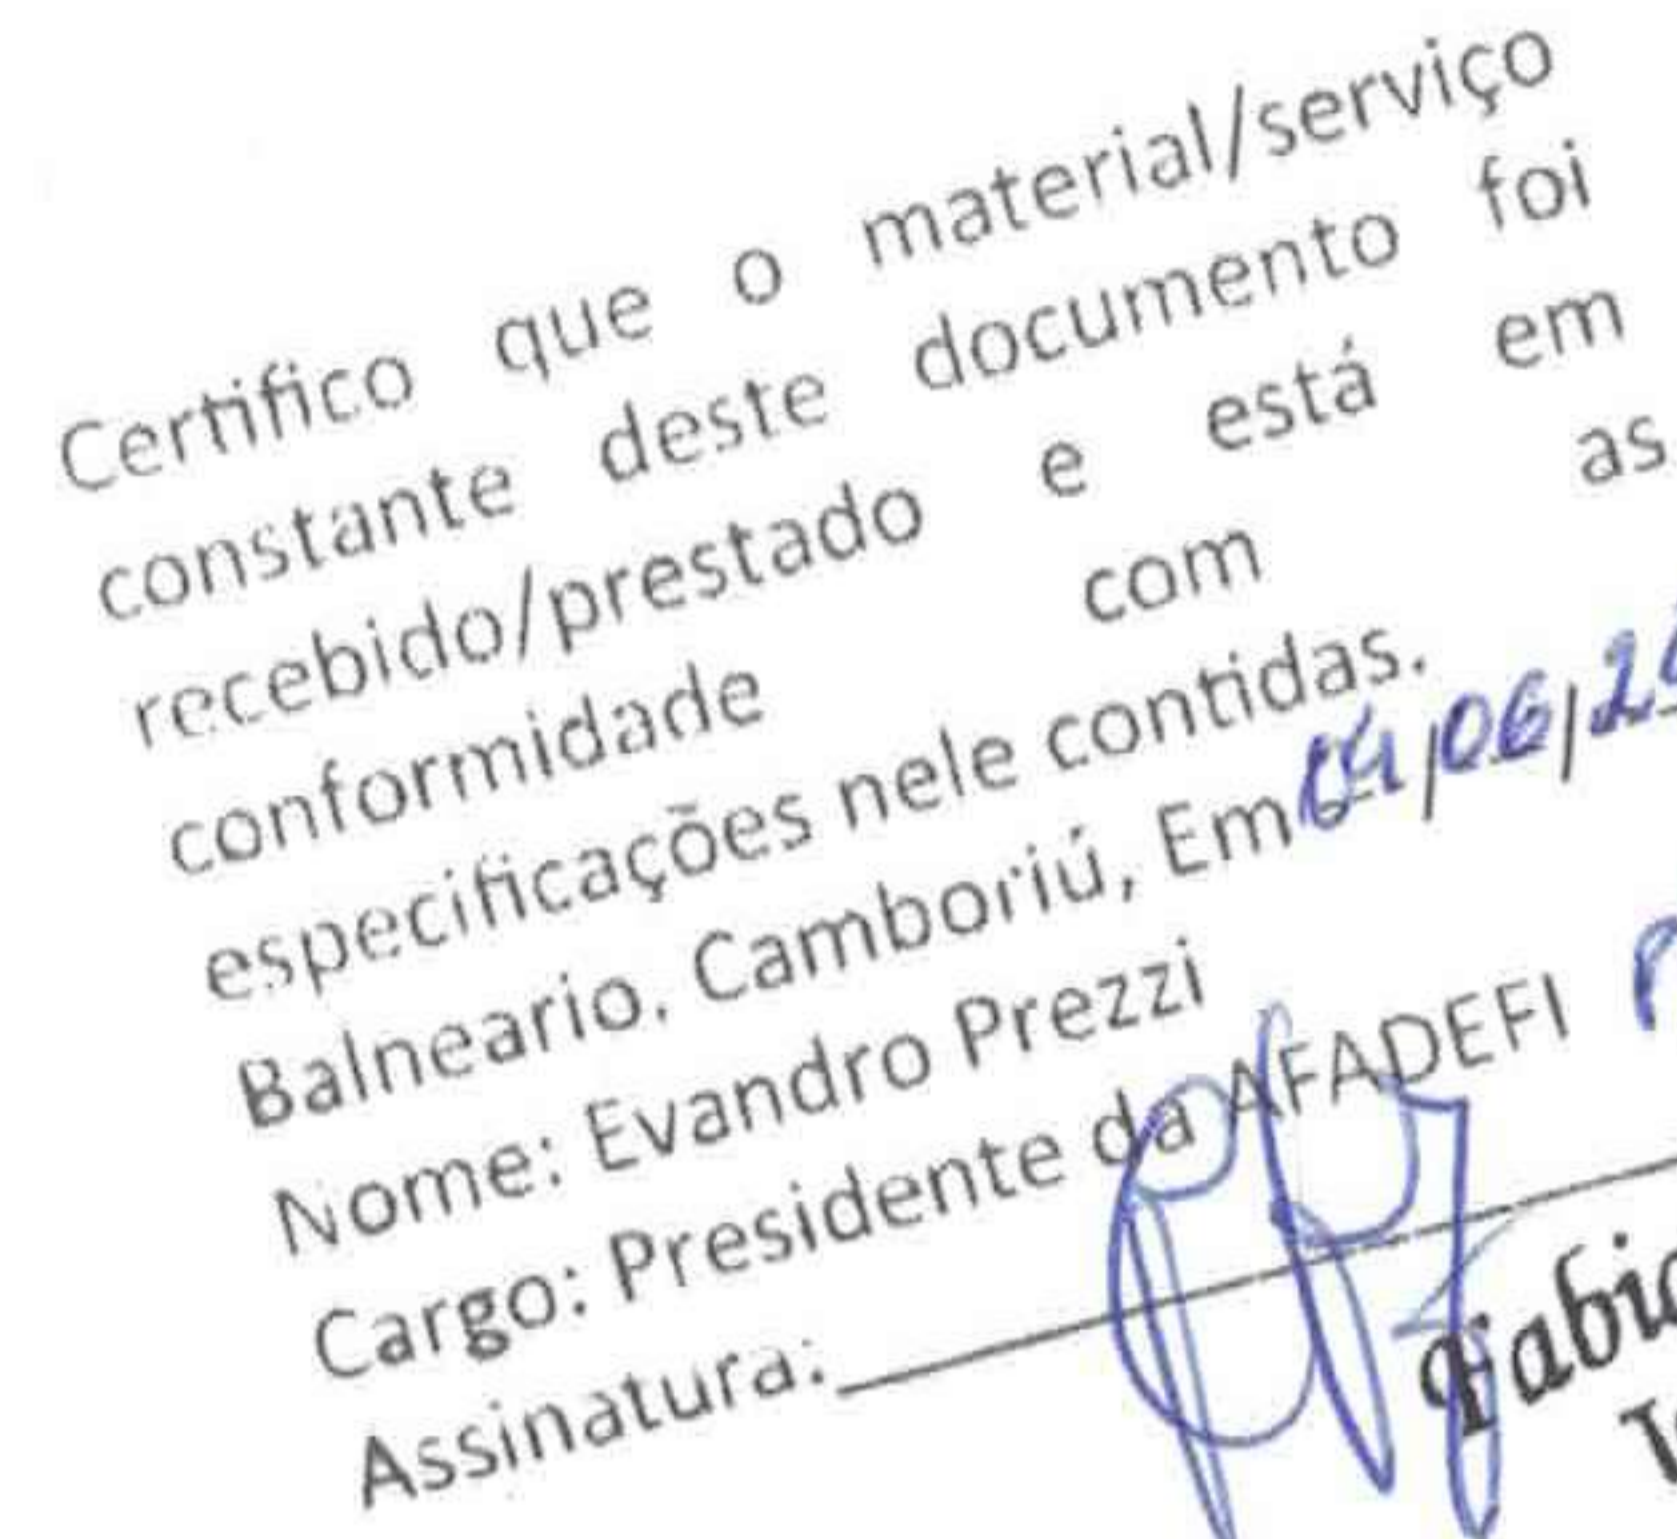 Certifico que o material/serviço
constante deste documento foi
recebido/prestado e está em
conformidade com as
especificações nele contidas.
Balneario. Camboriú, Em 04/06/2
Nome: Evandro Prezzi
Cargo: Presidente da AFADEFI
Assinatura:
Fabi